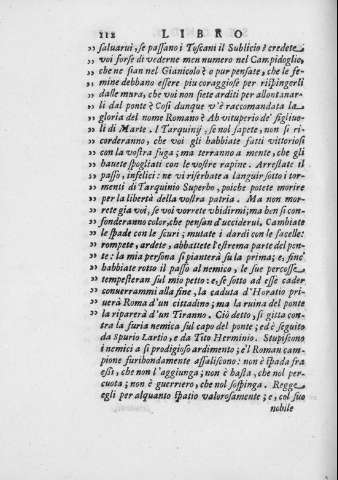 212 LIBRO
„ saluarui, se passano i Toscani il Sublicio? credete
„ voi forse di vederne men numero nel Campidoglio,
„ che ne sian nel Gianicolo? o pur pensate, che le fe-
„ mine debbano essere piu coraggiose per rispingerli
„ dalle mura, che voi non siete arditi per allontanar-
„ li dal ponte? Così dunque v'è raccomandata la
„ gloria del nome Romano? Ah vituperio de' figliuo-
„ li di Marte. I Tarquinij, se nol sapete, non si ri-
„ corderanno, che voi gli habbiate fatti vittoriosi
„ con la vostra fuga; ma terranno a mente, che gli
„ hauete spogliati con le vostre rapine. Arrestate il
„ passo, infelici: ne vi riserbate a languir sotto i tor-
„ menti di Tarquinio Superbo, poiche potete morire
„ per la libertà della vostra patria. Ma non mor-
„ rete già voi, se voi vorrete vbidirmi; ma ben si con-
„ fonderanno color, che pensan d'vccidervi. Cambiate
„ le spade con le scuri; mutate i dardi con le facelle:
„ rompete, ardete, abbattete l'estrema parte del pon-
„ te: la mia persona si pianterà su la prima; e, finc'
„ habbiate rotto il passo al nemico, le sue percosse
„ tempesteran sul mio petto: e, se sotto ad esse cader
„ conuerrammi alla fine, la caduta d'Horatio pri-
„ uerà Roma d'un cittadino; ma la ruina del ponte
„ la riparerà d'un Tiranno. Ciò detto, si gitta con-
tra la furia nemica sul capo del ponte; ed è seguito
da Spurio Lartio, e da Tito Herminio. Stupiscono
i nemici a si prodigioso ardimento; e'l Roman cam-
pione furibondamente assaliscono: non è spada fra
essi, che non l'aggiunga; non è hasta, che nol per-
cuota; non è guerriero, che nol sospinga. Regge
egli per alquanto spatio valorosamente; e, col suo
nobile